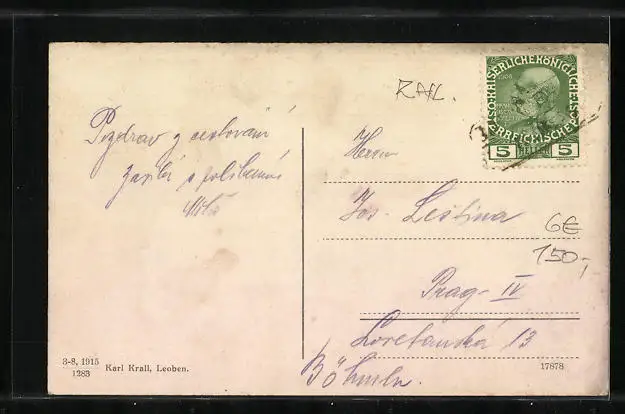 RAfL.
KAISERLICHE KÖNIGLICHE
ERREICHISCHE
5 5
Pozdrav z cestování
zasílá s políbením
Herrn
Jos. Leština
6€
150,-
Prag - IV
Loretanská 13
Böhmen.
3-8, 1915
1283
Karl Krall, Leoben.
17878